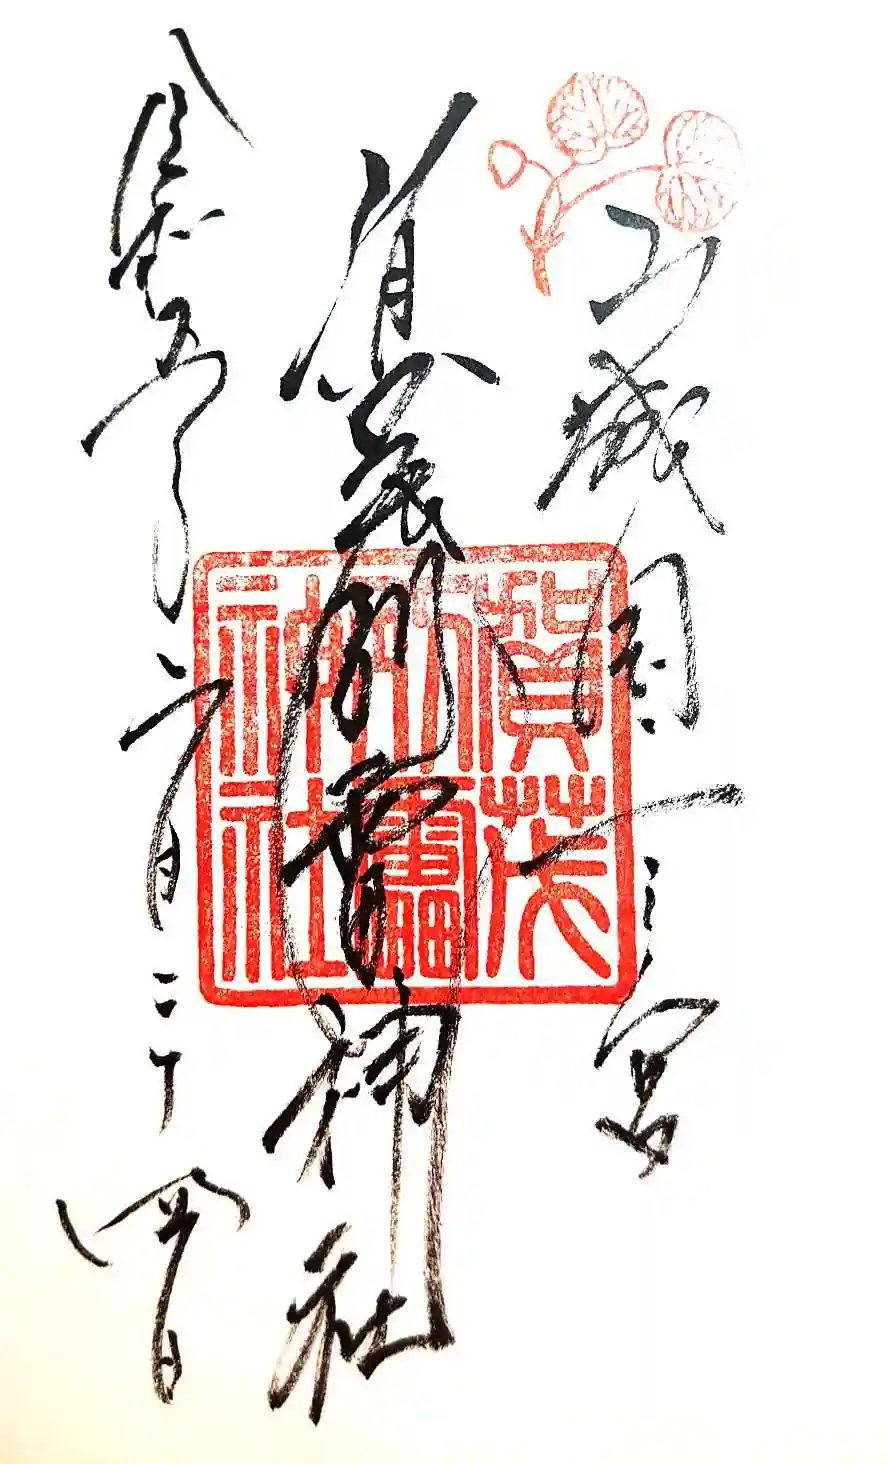 山城国一之宮
賀茂別雷神社
令和五年月二十四日
賀茂
別雷
神社